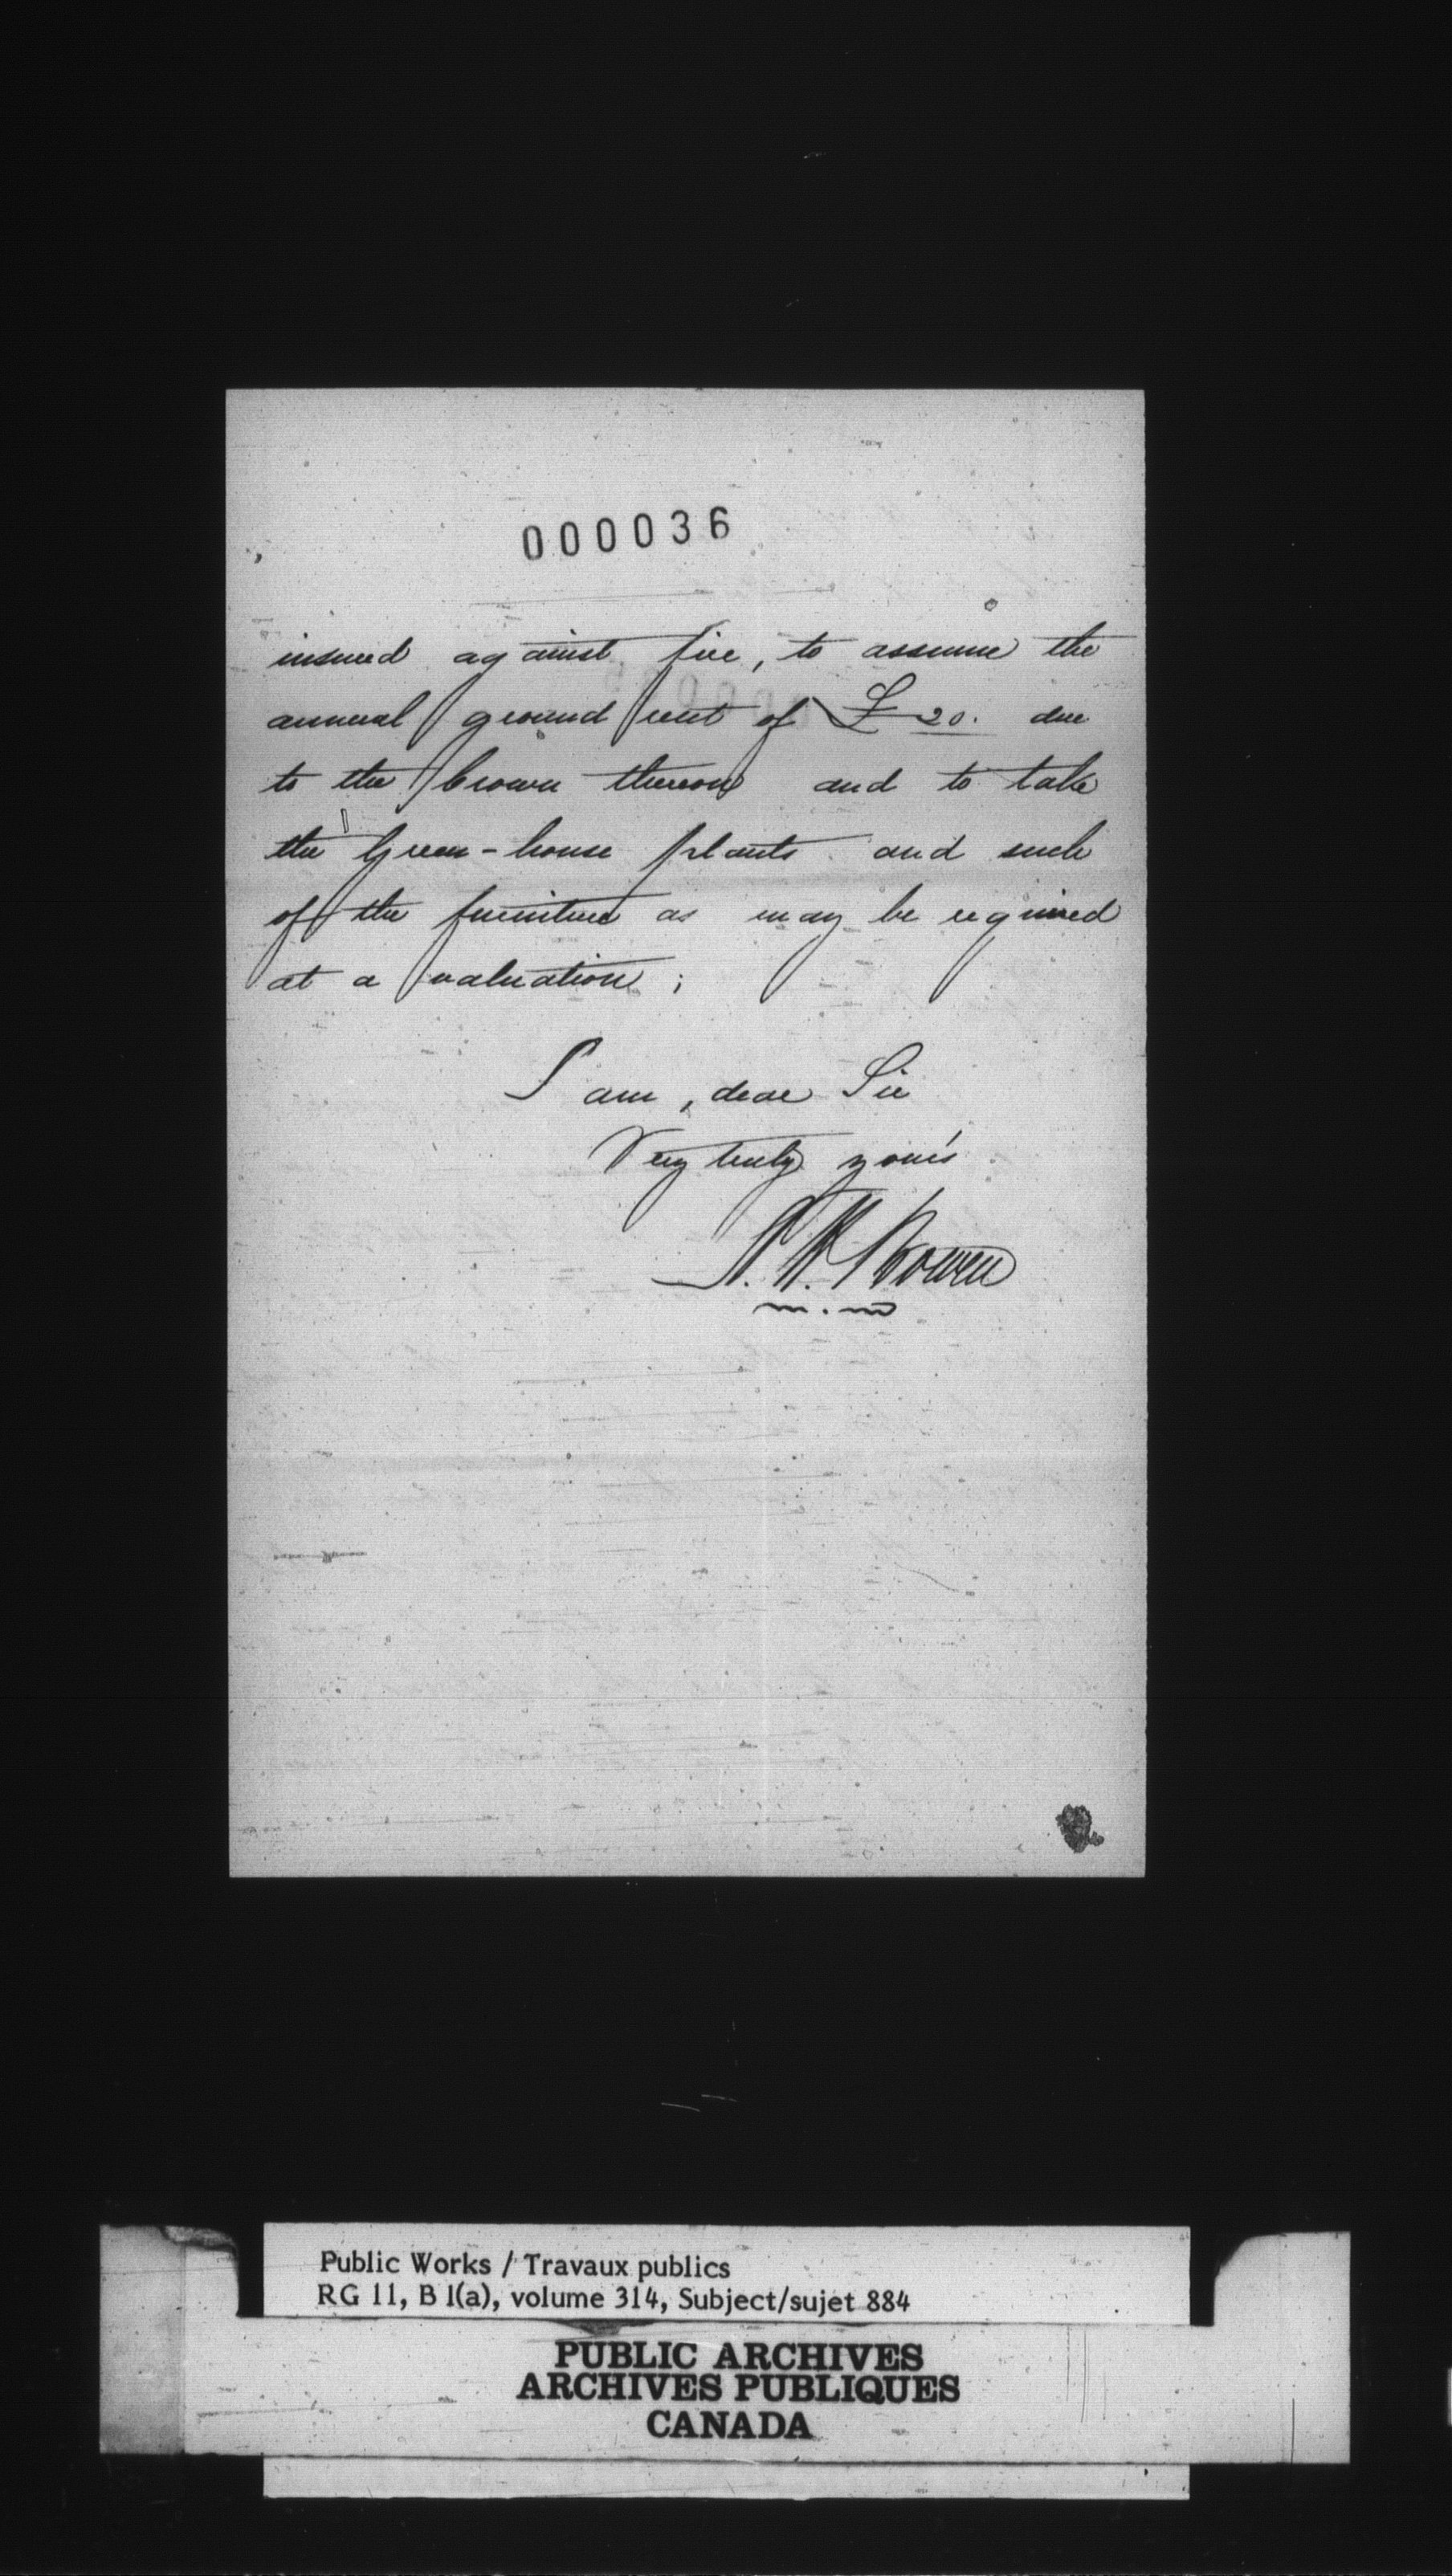 000036
insured against fire, to assume the
annual ground rent of £20. due
to the Crown thereon and to take
the Green-house plants and such
of the furniture as may be required
at a valuation;
I am, dear Sir
Very truly yours
Bowen
Public Works / Travaux publics
RG 11, B 1(a), volume 314, Subject/sujet 884
PUBLIC ARCHIVES
ARCHIVES PUBLIQUES
CANADA